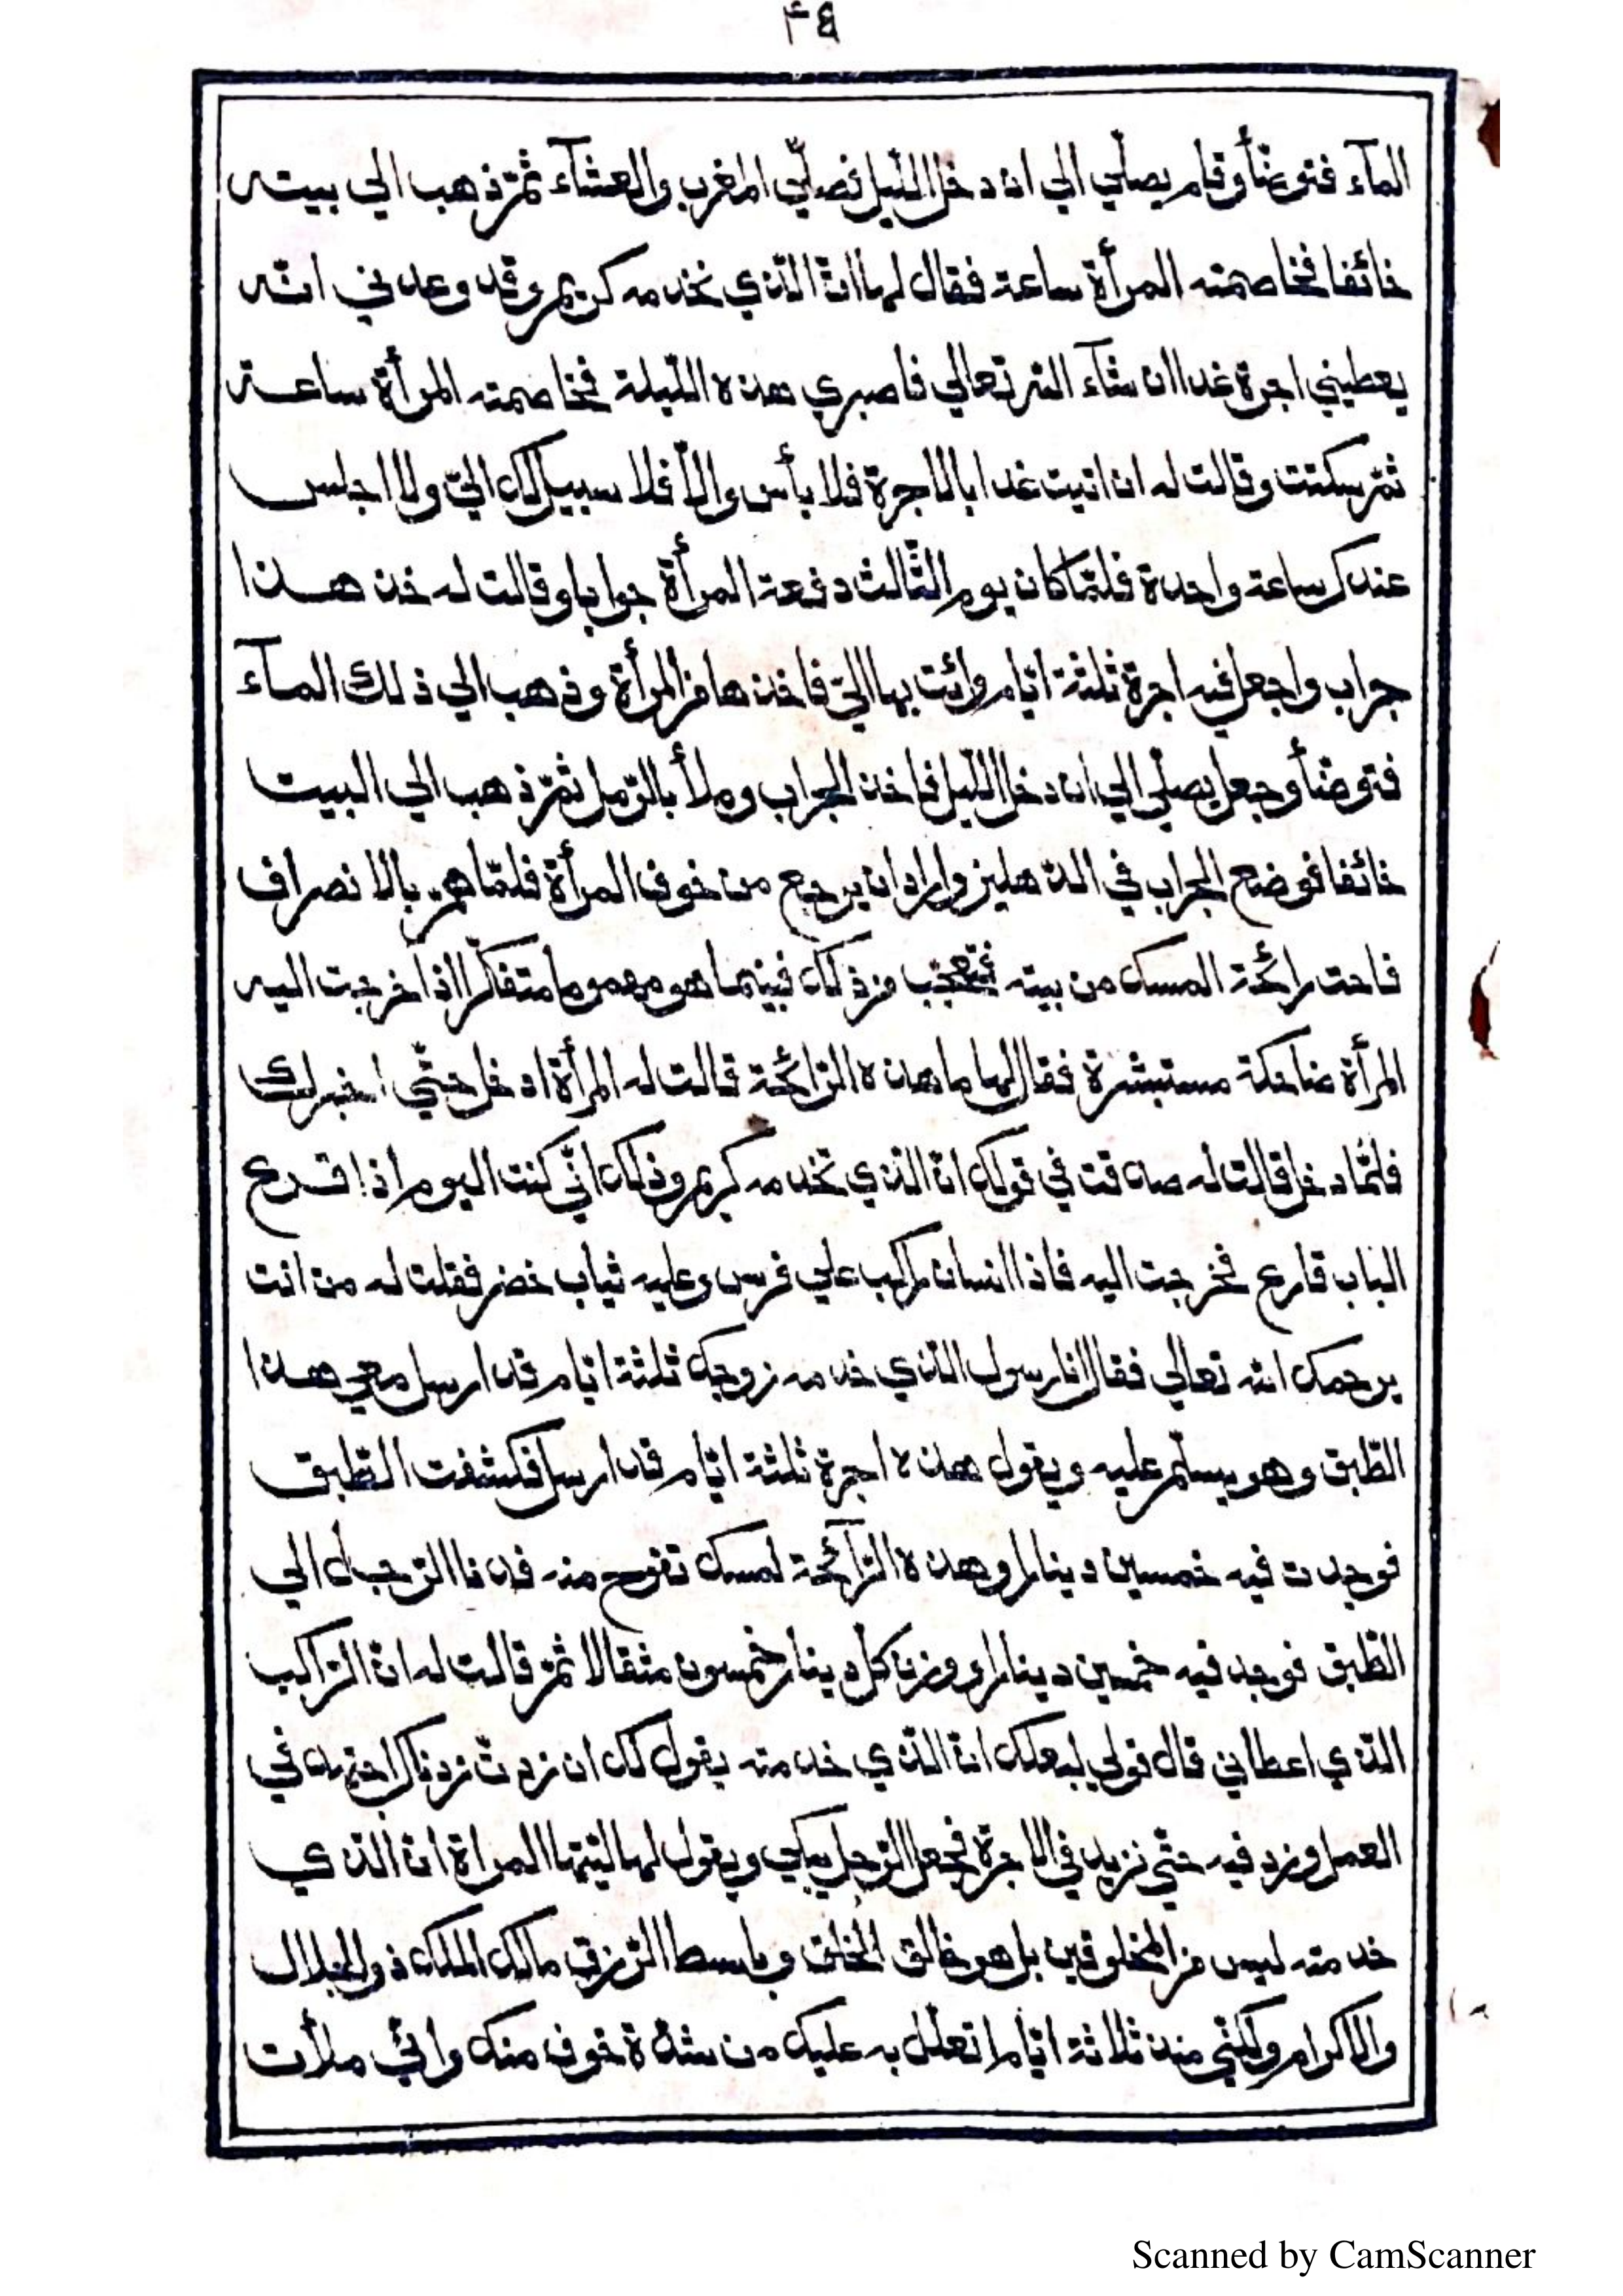 ٤٩
المآء فتوضّأ وقام يصلّي الي ان دخل اللّيل فصلّي المغرب والعشآء ثمّ ذهب الي بيته
خائفا فخاصمته المرأة ساعة فقال لها انّ الّذي نخدمه كريم وقد وعدني انّه
يعطيني اجرة غدا ان شآء اللّه تعالي فاصبري هذه اللّيلة فخاصمته المرأة ساعة
ثمّ سكتت وقالت له ان اتيت غدا بالاجرة فلا بأس والّا فلا سبيل لك اليّ ولا اجلس
عندك ساعة واحدة فلمّا كان يوم الثّالث دفعة المرأة جوابا وقالت له خذ هذا
جراب واجعل فيه اجرة ثلثة ايّام وائت بها اليّ فاخذها من المرأة وذهب الي ذلك المآء
فتوضّأ وجعل يصلّي الي ان دخل اللّيل فاخذ الجراب وملأ بالرّمل ثمّ ذهب الي البيت
خائفا فوضع الجراب في الدّهليز واراد ان يرجع من خوف المرأة فلمّا همّ بالانصراف
فاحت رائحة المسك من بيته فتعجّب من ذلك فبينما هو مهموما متفكّرا اذا خرجت اليه
المرأة ضاحكة مستبشرة فقال لها ما هذه الرّائحة قالت له المرأة ادخل حتّي اخبرلك
فلمّا دخل قالت له صدقت في قولك انّ الذي تخدمه كريم وذلك انّي كنت اليوم اذا قرع
الباب قارع فخرجت اليه فاذا انسان راكب علي فرس وعليه ثياب خضر فقلت له من انت
يرحمك اللّه تعالي فقال انا رسول الّذي خدمه زوجك ثلثة ايّام قد ارسل معي هذا
الطّبق وهو يسلّم عليه ويقول هذه اجرة ثلثة ايّام قد ارسل فكشفت الطّبق
فوجدت فيه خمسين دينارا وهذه الرّآئحة لمسك تفوح منه فدنا الرّجل الي
الطّبق فوجد فيه خمسين دينارا ووزن كلّ دينار خمسون مثقالا ثمّ قالت له انّ الرّاكب
الّذي اعطاني قال قولي لبعلك انّ الّذي خدمته يقول لك ان زدت زدناك اجتهد في
العمل وزد فيه حتّي نزيد في الاجرة فجعل الرّجل يبكي ويقول لها ايّتها المراة انّ الّذي
خدمته ليس من المخلوقين بل هو خالق الخلق وباسط الرّزق مالك الملك ذو الجلال
والاكرام ولكنّي منذ ثلاثة ايّام اتعلّل به عليك من شدّة خوف منك وانّي ملأت
Scanned by CamScanner